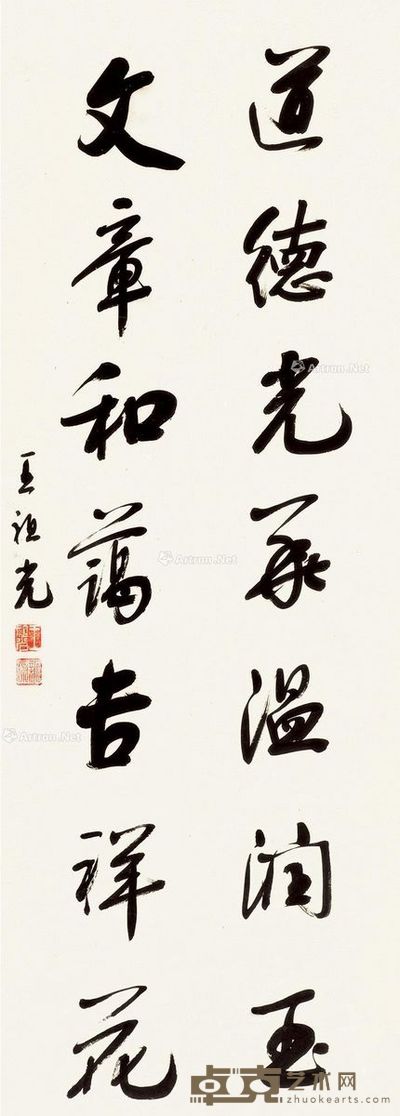 道德光華温潤玉
文章和藹吉祥花
王祖光
Artron.Net
Artron.Net
Artron.Net
卓克艺术网
zhuokearts.com